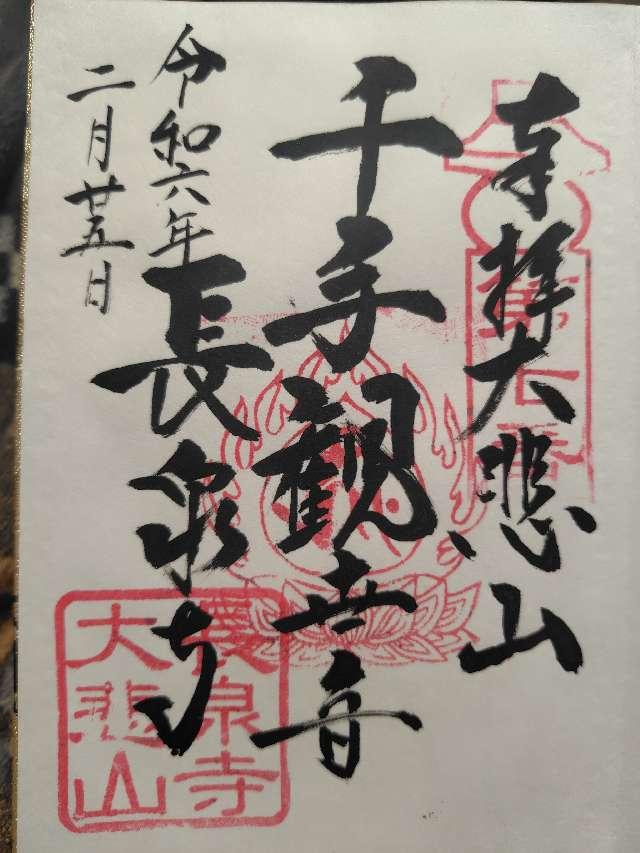 奉拝大悲山
第七番
千手観世音
長泉寺
令和六年
二月廿五日
長泉寺
大悲山